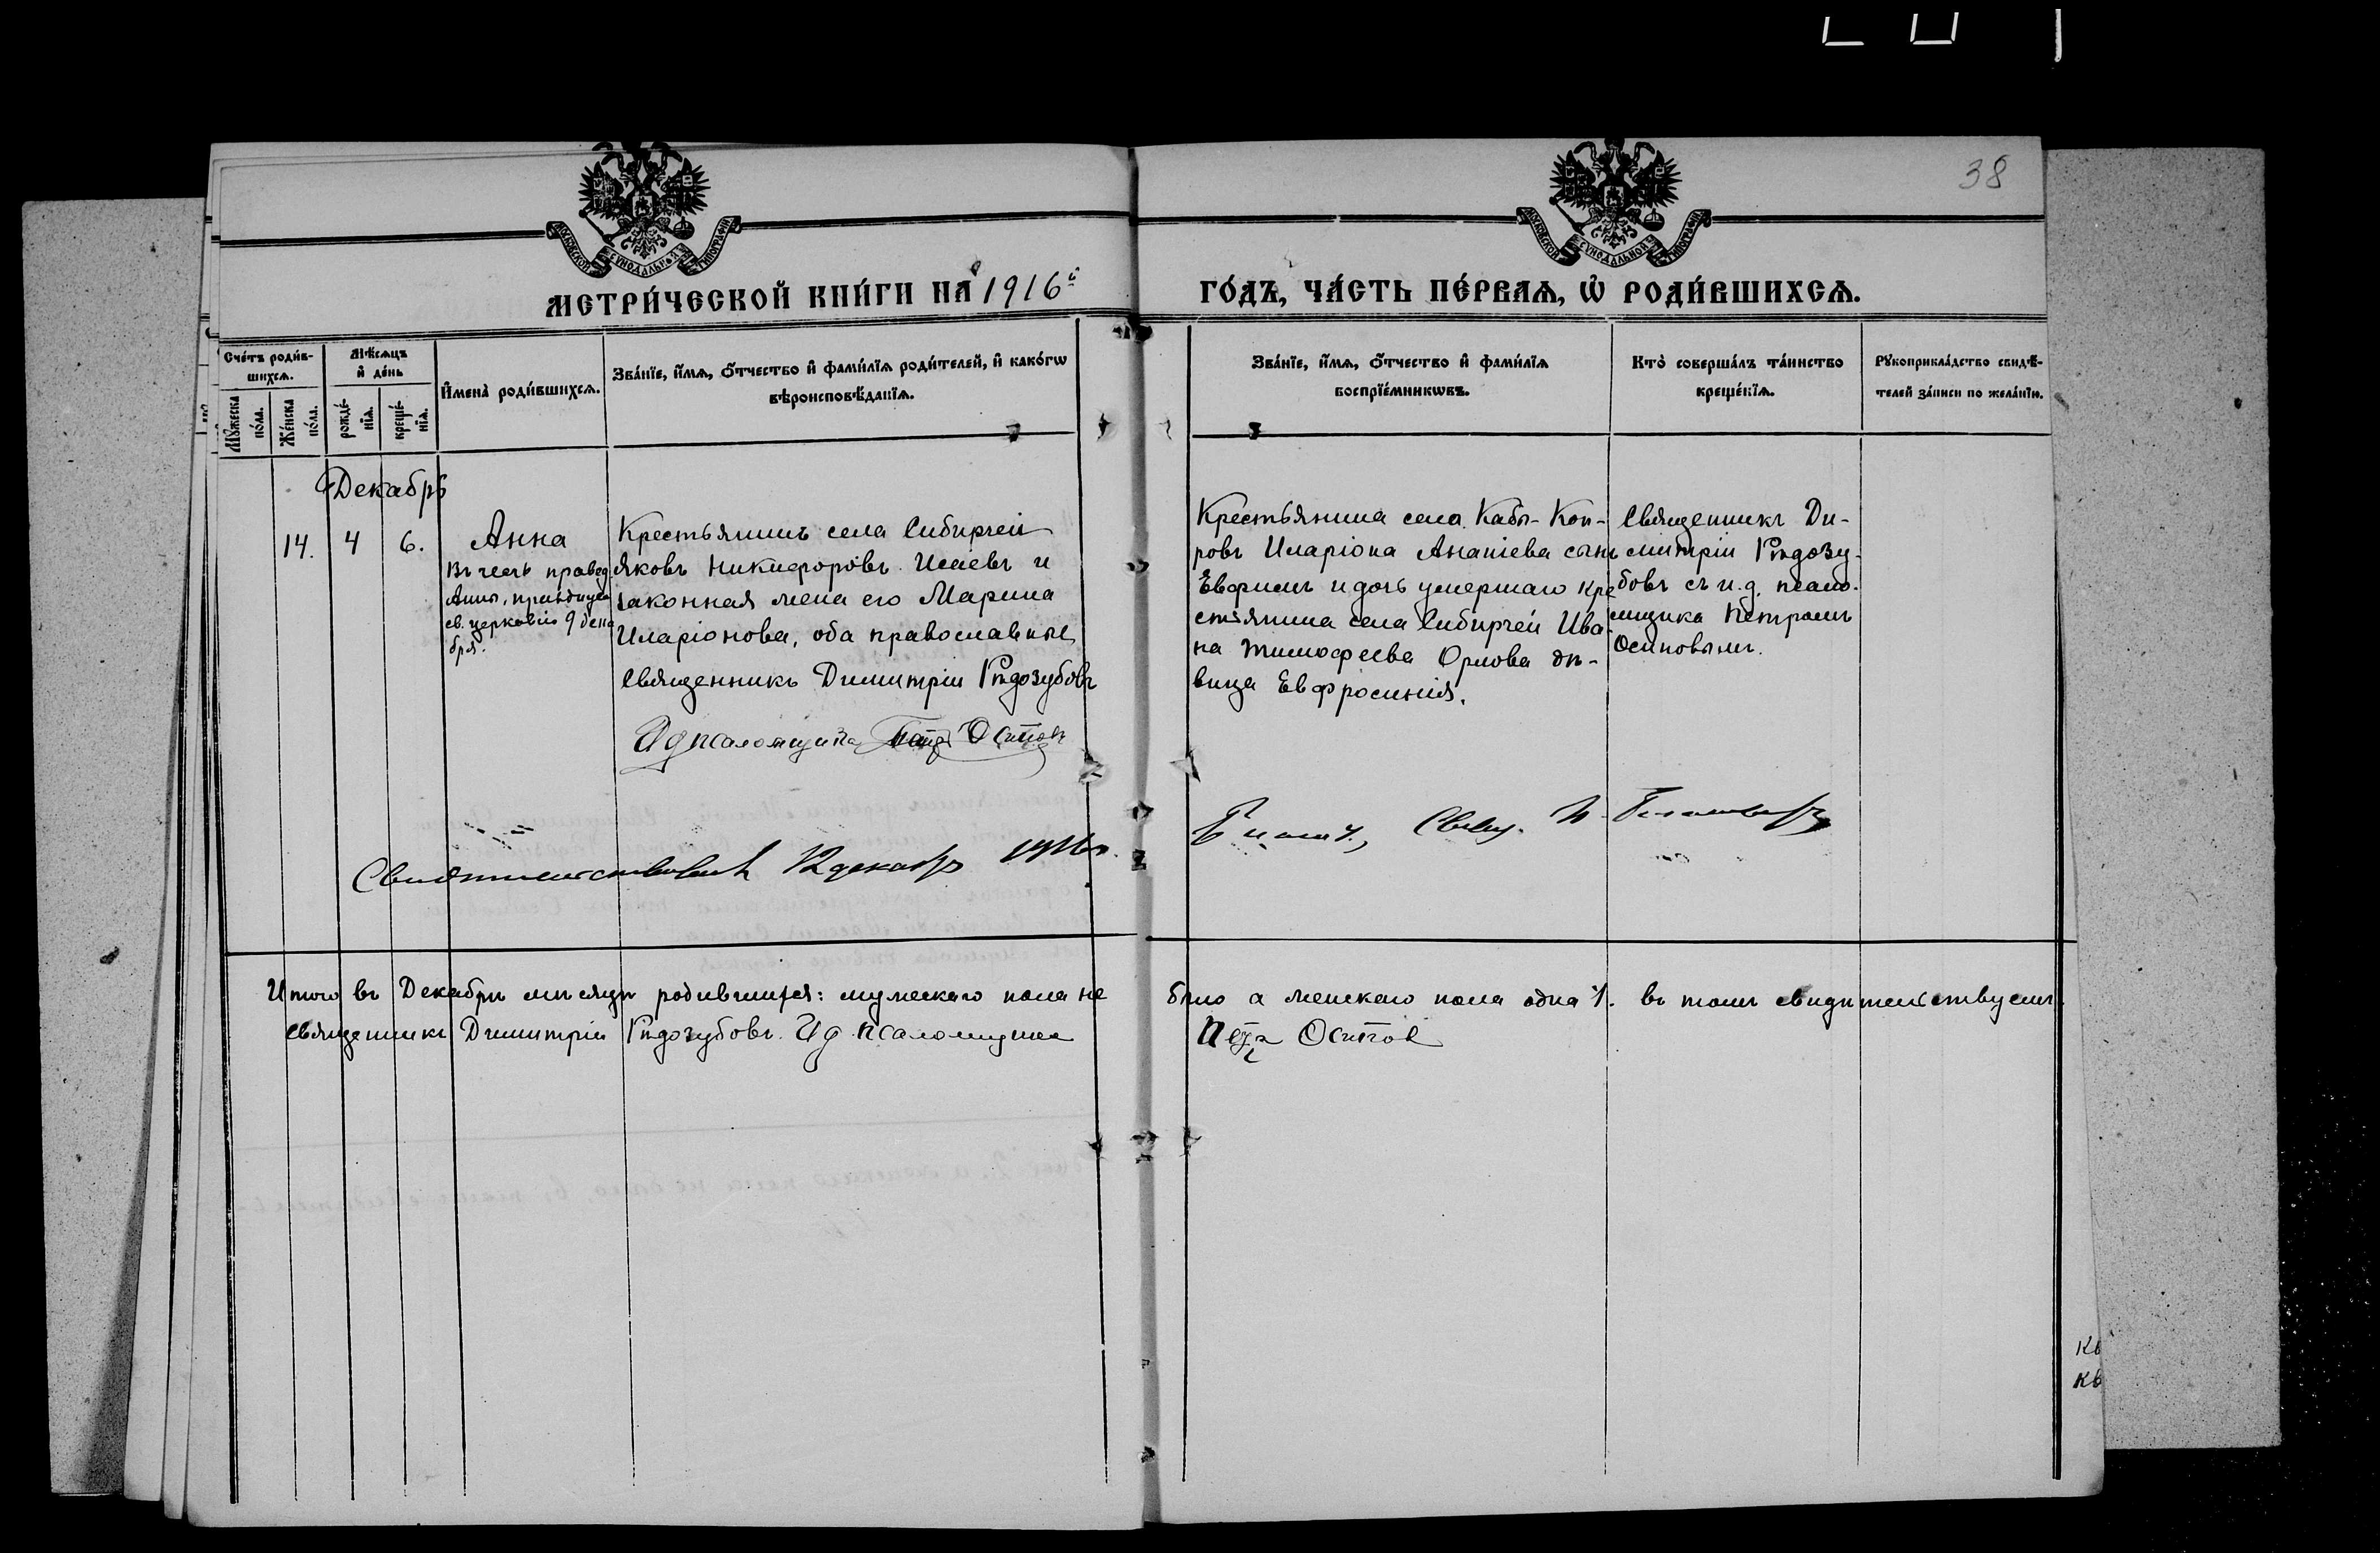 38
МОСКОВСКОЙ СѴНОДАЛЬНОЙ ТИПОГРАФІИ
МОСКОВСКОЙ СѴНОДАЛЬНОЙ ТИПОГРАФІИ
МЕТРИ́ЧЕСКОЙ КНИ́ГИ НА 1916й ГО́ДЪ, ЧА́СТЬ ПЕ́РВАѦ, Ѡ РОДИ́ВШИХСѦ.
Сче́тъ роди́в-
шихсѧ.
Мꙋ́жеска
по́ла.
Же́нска
по́ла.
Мѣ́сѧцъ
и҆ де́нь
рожде́-
нїѧ.
креще́-
нїѧ.
И҆мена̀ роди́вшихсѧ.
Зва́нїе, и҆́мѧ, ѻ҆́тчество и҆ фами́лїѧ роди́телей, и҆ како́гѡ
вѣроисповѣ́данїѧ.
Зва́нїе, и҆́мѧ, ѻ҆́тчество и҆ фами́лїѧ
воспрїе́мникѡвъ.
Кто̀ соверша́лъ та́инство
креще́нїѧ.
Рꙋкоприкла́дство свидѣ́-
телей за́писи по жела́нїю.
Декабрь
14. 4 6.
Анна
Въ честь правед.
Анны, празднуем
св. церковію 9 дека
бря.
Крестьянинъ села Сибирчей
Яковъ Никифоровъ Исаевъ и
законная жена его Марина
Иларіонова, оба православные
Священникъ Димитрій Рѣдозубовъ
И д псаломщика Петръ Осипов
Крестьянина села Кабы-Коп-
ровъ Иларіона Ананіева сынъ
Евфимъ и дочь умершаго кре
стьянина села Сибирчей Ива-
на Тимофеева Орлова дѣ-
вица Евфросинія.
Священникъ Ди-
митрій Рѣдозу-
бовъ съ и. д. псало-
мщика Петромъ
Осиповымъ.
12 декабр 1916 г.
Итого въ Декабрѣ мѣсяцѣ родившихся: мужескаго пола не было а женскаго пола одна 1. въ томъ свидѣтельствуемъ
Священникъ Димитрій Рѣдозубовъ. И д псаломщика Петръ Осипов
Кв
Кв